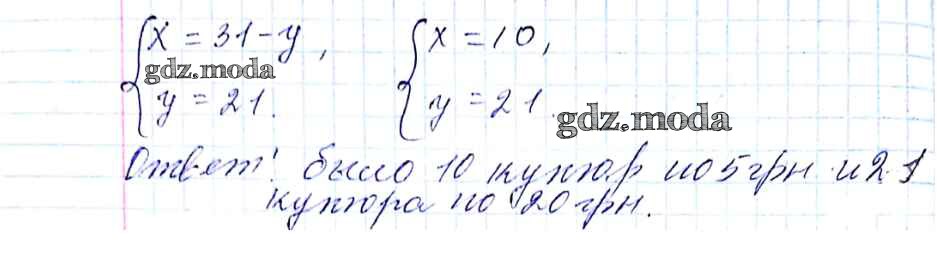 x = 31 - y, x = 10,
gdz.moda
y = 21. y = 21
gdz.moda
Ответ: было 10 купюр по 5 грн и 21
купюра по 20 грн.